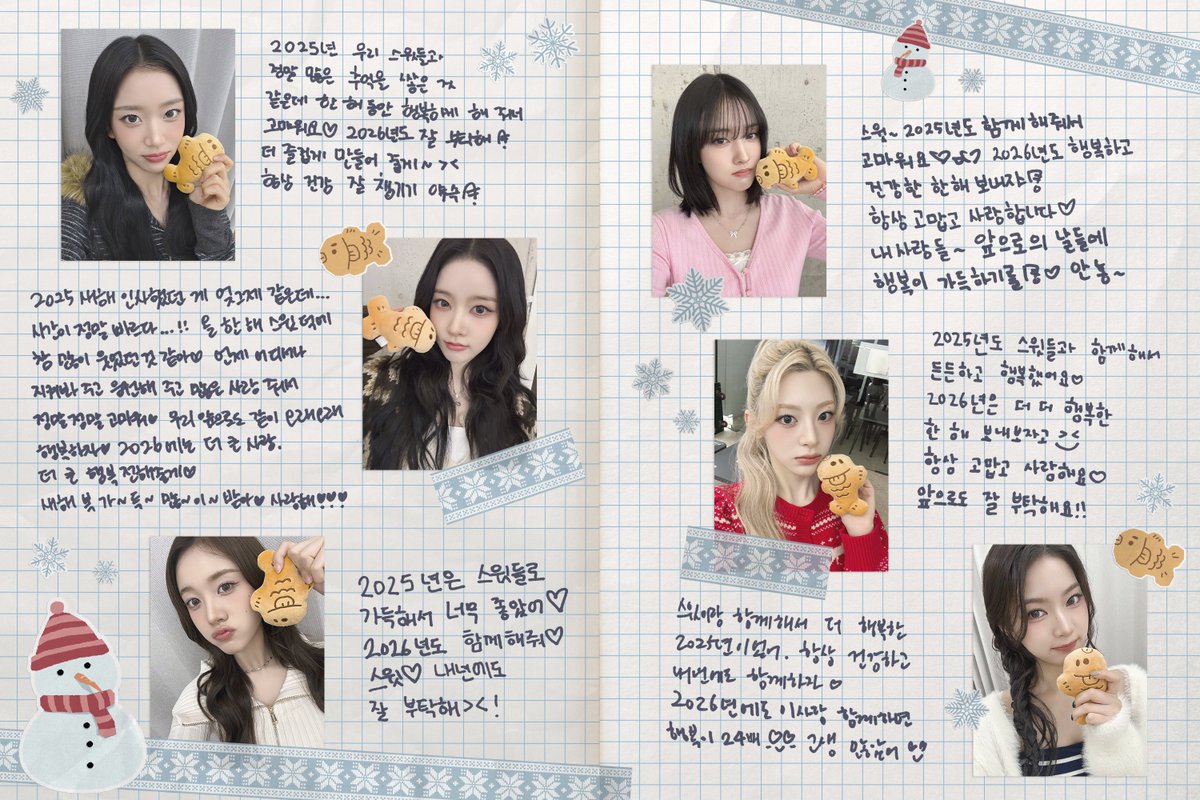 2025년 우리 스윗들과
정말 많은 추억을 쌓은 것
같은데 한 해 동안 행복하게 해 줘서
고마워요♡ 2026년도 잘 부탁해
더 즐겁게 만들어 줄게~ ><
항상 건강 잘 챙기기 약속
2025 새해 인사했던 게 엊그제 같은데...
시간이 정말 빠르다...!! 올 한 해 스윗 덕에
참 많이 웃었던 것 같아♡ 언제 어디서나
지켜봐 주고 응원해 주고 많은 사랑 줘서
정말 정말 고마워♥ 우리 앞으로도 같이 오래오래
행복하자♥ 2026에는 더 큰 사랑.
더 큰 행복 전해줄게♡
새해 복 가~득~ 많~이~ 받아♥ 사랑해♥♥♥
2025년은 스윗들로
가득해서 너무 좋았어♡
2026년도 함께해줘♡
스윗♡ 내년에도
잘 부탁해><!
스윗~ 2025년도 함께해줘서
고마워요♡ 2026년도 행복하고
건강한 한해 보내자
항상 고맙고 사랑합니다♡
내 사랑들~ 앞으로의 날들에
행복이 가득하기를 ♡ 안농~
2025년도 스윗들과 함께해서
든든하고 행복했어요♡
2026년은 더 더 행복한
한 해 보내보자고 ><
항상 고맙고 사랑해요♡
앞으로도 잘 부탁해요!!
스윗이랑 함께해서 더 행복한
2025년이었어. 항상 건강하고
함께하자♡
2026년에도 함께하면
행복이 24배 ♡♡